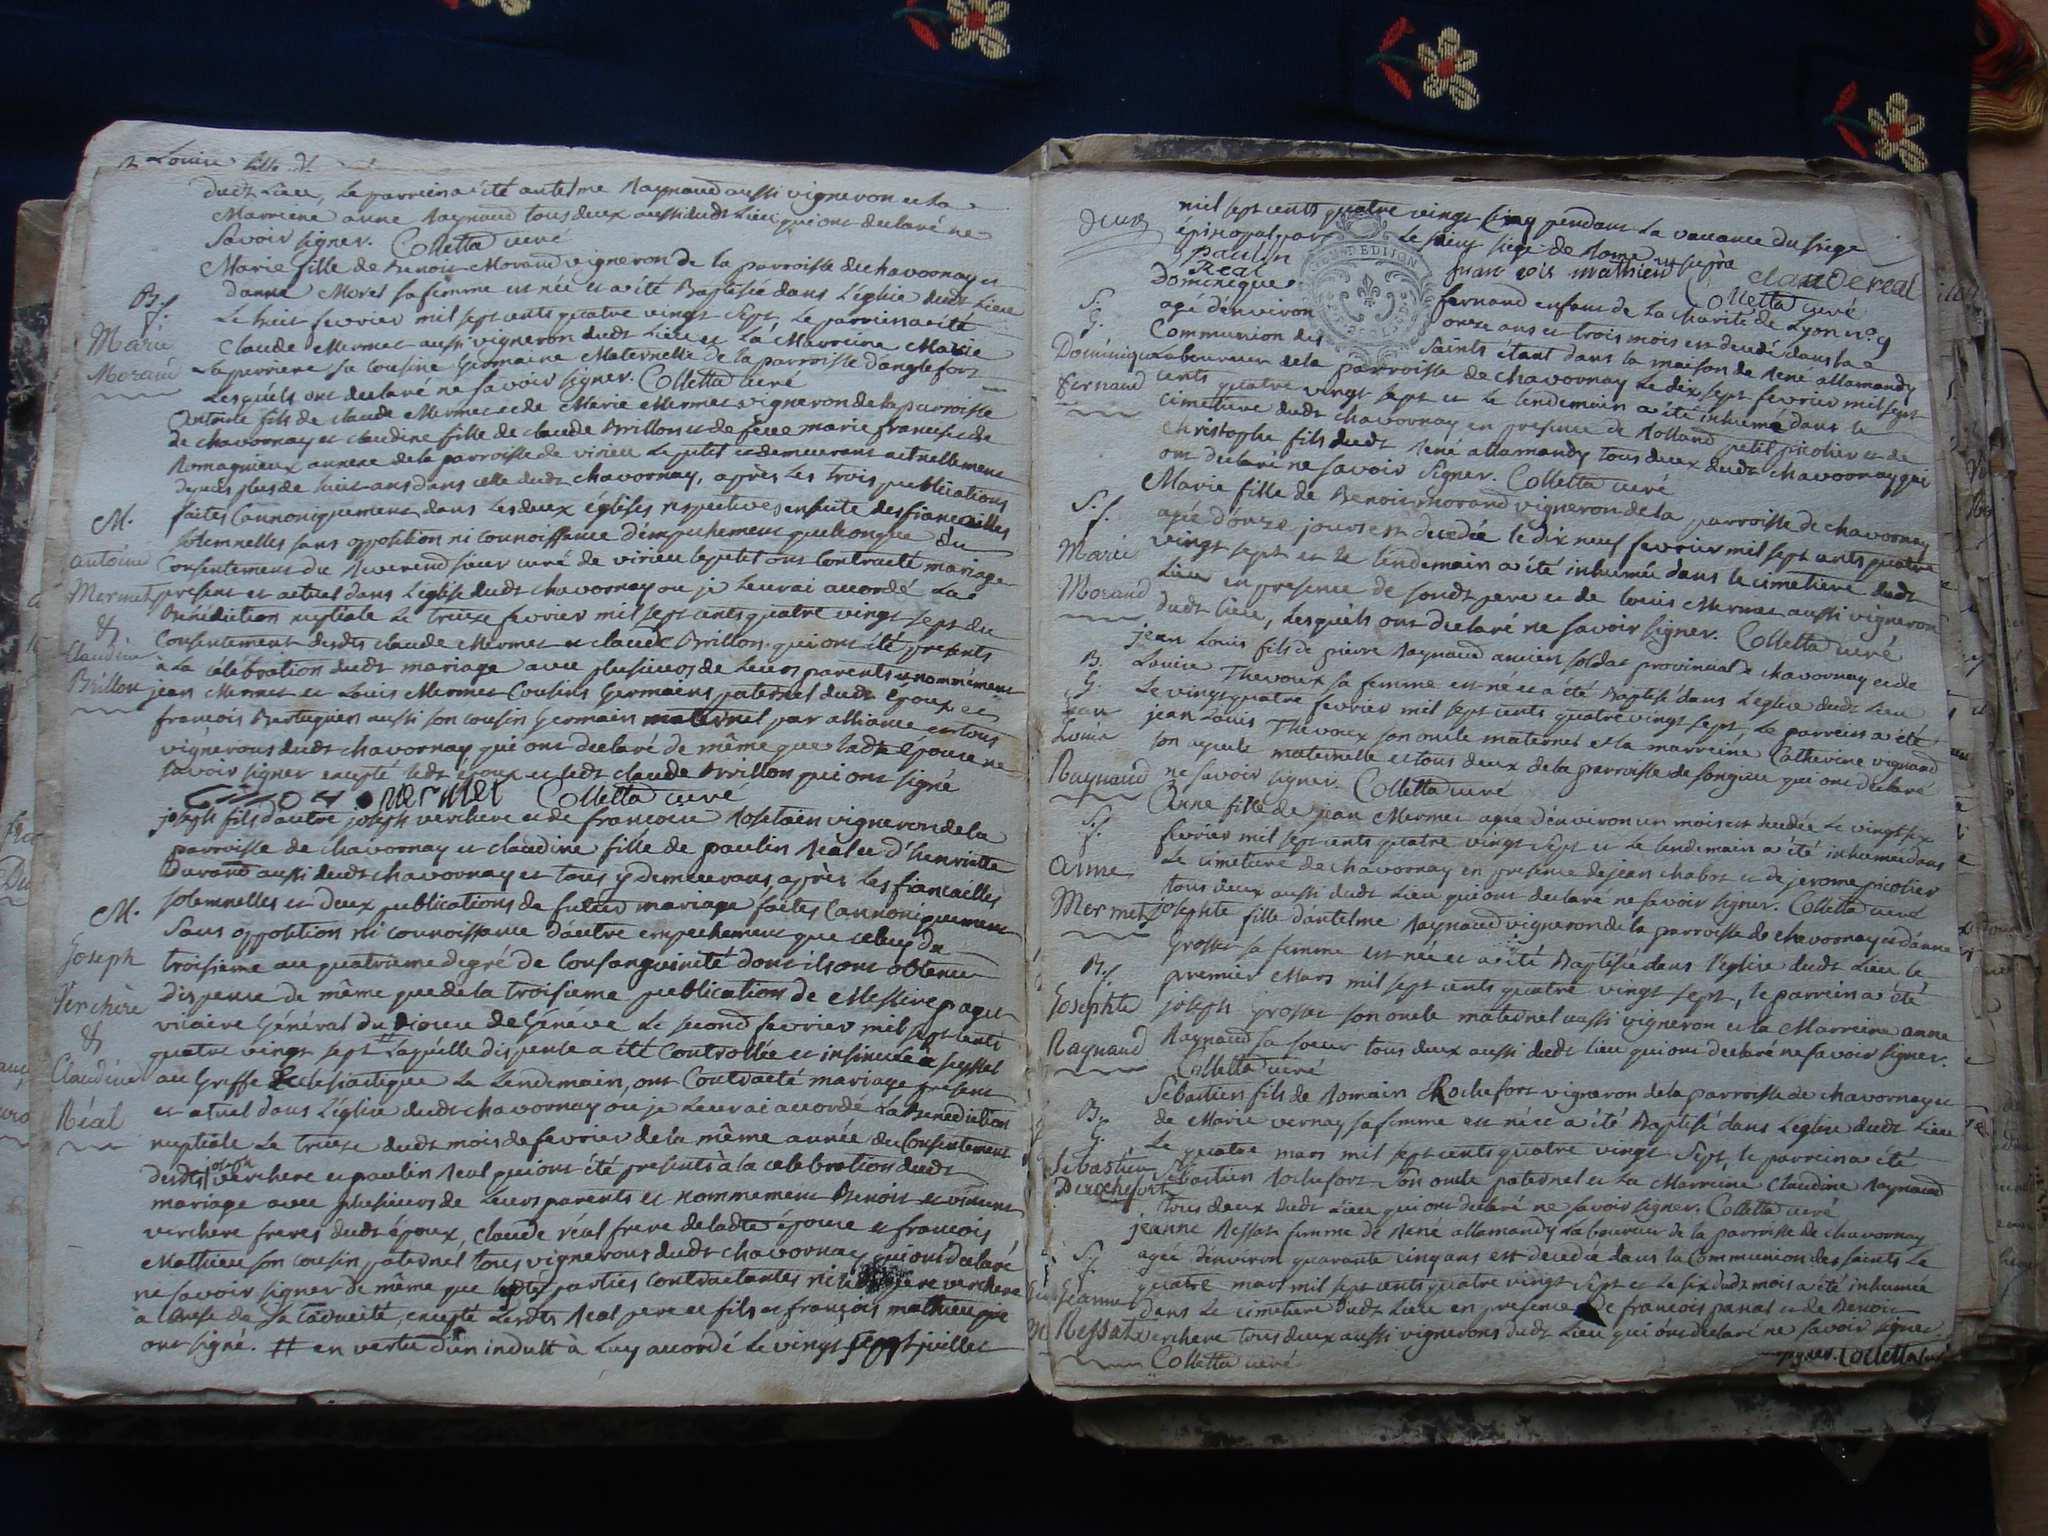 Louise fille de
dudt Lieu, Le parrein a été antelme Raynaud aussi vigneron et La
Marreine anne Raynaud tous deux aussi dudt Lieu qui ont declaré ne
savoir signer. Colletta curé
B. f.
Marie
Morand
Marie fille de Benoit Morand vigneron de la parroisse de chavornay et
d'anne Moret sa femme est née et a été Baptisée dans L'église dudt Lieu
Le huit fevrier mil sept cents quatre vingt sept. Le parrein a été
Claude Mermet aussi vigneron dudt Lieu et La Marreine Marie
Laperriere sa Cousine Germaine Maternelle de la parroisse d'anglefort
Lesquels ont declaré ne savoir signer. Colletta curé
M.
antoine
Mermet
&
Claudine
Brillon
Antoine fils de claude Mermet et de Marie Mermet vigneron de la parroisse
de chavornay et claudine fille de claude Brillon et de feue marie francoise de
Romagnieux annexe de la parroisse de virieu Le petit et demeurant actuellement
depuis plus de huit ans dans celle dudt chavornay, après Les trois publications
faites Cannoniquement dans Les deux églises respectives ensuite des fiancailles
solemnelles sans opposition ni connoissance d'empechement quelconque du
Consentement du Reverend sieur curé de virieu le petit ont Contracté mariage
present et actuel dans L'église dudt chavornay ou je Leur ai accordé La
Bénédiction nuptiale Le treize fevrier mil sept cents quatre vingt sept du
Consentement desdts claude Mermet et claude Brillon qui ont été presents
a La célébration dudt mariage avec plusieurs de Leurs parents et nommément
jean Mermet et Louis Mermet Cousins Germains paternels dudt époux et
francois Berthuguen aussi son cousin Germain maternel par alliance et tous
vignerons dudt chavornay qui ont declaré de même que ladte épouse ne
savoir signer excepté ledt époux et ledt claude Brillon qui ont signé
Mermet Colletta curé
M.
Joseph
Verchère
&
Claudine
Réal
joseph fils d'autre joseph verchere et de francoise Rostain vigneron de la
parroisse de chavornay et claudine fille de paulin Real et d'henriette
Durand aussi dudt chavornay et tous y demeurans, après Les fiancailles
solemnelles et deux publications de futur mariage faites Cannoniquement
sans opposition ni connoissance d'autre empechement que celuy du
troisieme au quatrieme degré de Consanguinité dont ils ont obtenu
dispense de même que de la troisieme publication de Messire paget
vicaire Général du Diocese de Génève Le second fevrier mil sept cents
quatre vingt sept Laquelle dispense a été Controllée et insinuée a seyssel
au Greffe Eclesiastique Le Lendemain, ont Contracté mariage present
et actuel dans L'église dudt chavornay ou je Leur ai accordé La Benediction
nuptiale Le treize dudt mois de fevrier de la même année du Consentement
desdts joseph verchere et paulin Real qui ont été presents à la celebration dudt
mariage avec plusieurs de Leurs parents et nommement Benoit et vincent
verchere freres dudt époux, claude réal frere de ladte épouse et francois
Mathieu son cousin paternel tous vignerons dudt chavornay qui ont declaré
ne savoir signer de même que lesdtes parties contractantes ni le pere verchere
à cause de sa caducité, excepté Lesdts Real pere et fils et françois mathieu qui
ont signé. # en vertu d'un indult à Luy accordé Le vingt sept juillet
deux
mil sept cents quatre vingt cinq pendant La vacance du siege
épiscopal par Le saint siege de Rome ut supra
paulin Real francois mathieu claude real
Colletta curé
S.
g.
Dominique
fernand
Dominique fernand enfant de La charité de Lyon n°. 9
agé d'environ onze ans et trois mois est decedé dans la
Communion des Saints étant dans la maison de René allamandy
Laboureur de la parroisse de chavornay Le dix sept fevrier mil sept
cents quatre vingt sept et le Lendemain a été inhumé dans le
cimetiere dudt chavornay en presence de Rolland petit picolier et de
christophe fils dudt René allamandy tous deux dudt chavornay qui
ont declaré ne savoir signer. Colletta curé
S.
f.
Marie
Morand
Marie fille de Benoit morand vigneron de la parroisse de chavornay
agée d'onze jours est decedée le dix neuf fevrier mil sept cents quatre
vingt sept et Le lendemain a été inhumée dans le cimetiere dudt
Lieu en presence de sondt pere et de Louis Mermet aussi vigneron
dudt lieu, Lesquels ont declaré ne savoir signer. Colletta curé
B.
G.
Jean
Louis
Raynaud
jean Louis fils de pierre Raynaud ancien soldat provincial de chavornay et de
Louise Thevoux sa femme est né et a été Baptisé dans L'église dudt Lieu
Le vingt quatre fevrier mil sept cents quatre vingt sept, Le parrein a été
jean Louis Thevoux son oncle maternel et la marreine Catherine vignand
son ayeule maternelle et tous deux de la parroisse de songieu qui ont declaré
ne savoir signer. Colletta curé
S.
f.
anne
Mermet
Anne fille de jean Mermet agée d'environ un mois est decedée Le vingt six
fevrier mil sept cents quatre vingt sept et Le lendemain a été inhumée dans
Le cimetiere de chavornay en presence de jean chabot et de jerome picolier
tous deux aussi dudt Lieu qui ont declaré ne savoir signer. Colletta curé
B. f.
Josephte
Raynaud
josephte fille d'antelme Raynaud vigneron de la parroisse de chavornay et d'anne
Grosset sa femme est née et a été Baptisée dans l'église dudt Lieu le
premier Mars mil sept cents quatre vingt sept, le parrein a été
joseph grosset son oncle maternel aussi vigneron et la Marreine anne
Raynaud sa soeur tous deux aussi dudt Lieu qui ont declaré ne savoir signer.
Colletta curé
B.
G.
Sebastien
De rochefort
Sébastien fils de Romain Rochefort vigneron de la parroisse de chavornay et
de Marie vernay sa femme est né et a été Baptisé dans L'église dudt Lieu
Le quatre mars mil sept cents quatre vingt sept le parrein a été
Sébastien Rochefort son oncle paternel et La Marreine Claudine Raynaud
tous deux dudt Lieu qui ont declaré ne savoir signer. Colletta curé
S.
f.
Jeanne
Ressat
jeanne Ressat femme de René allamandy Laboureur de la parroisse de chavornay
agée d'environ quarante cinq ans est decedée dans la Communion des saints Le
quatre mars mil sept cents quatre vingt sept et Le six dudt mois a été inhumée
dans Le cimetiere dudt Lieu en presence de francois panat et de Benoit
verchere tous deux aussi vignerons dudt Lieu qui ont declaré ne savoir signer
Colletta curé
signer. Colletta curé